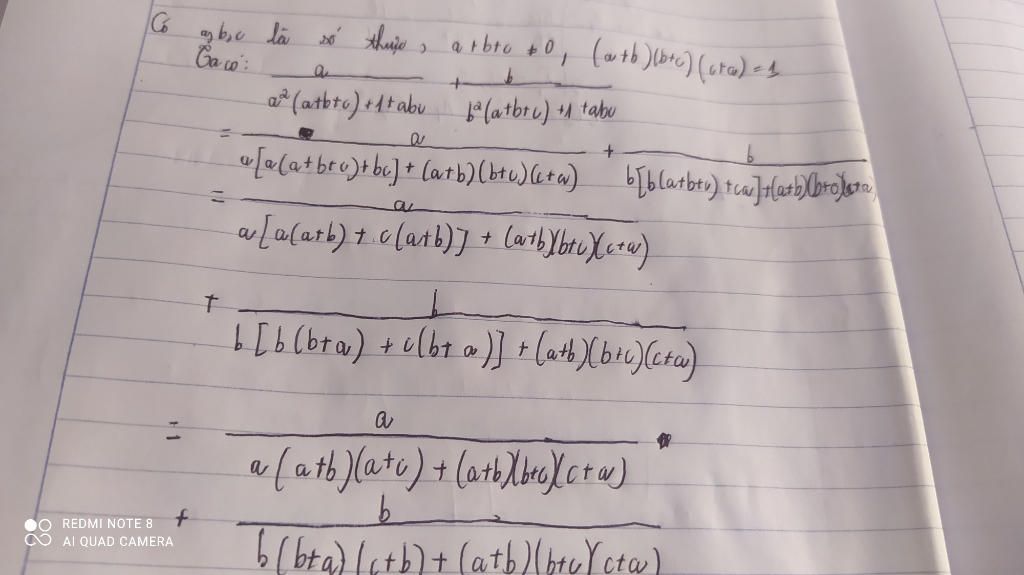 Có a,b,c là số thực, a+b+c ≠ 0, (a+b)(b+c)(c+a)=1
Ta có: a/(a²(a+b+c)+1+abc) + b/(b²(a+b+c)+1+abc)
= a/(a[a(a+b+c)+bc]+(a+b)(b+c)(c+a)) + b/(b[b(a+b+c)+ca]+(a+b)(b+c)(c+a))
= a/(a[a(a+b)+c(a+b)]+(a+b)(b+c)(c+a))
+ b/(b[b(b+a)+c(b+a)]+(a+b)(b+c)(c+a))
= a/(a(a+b)(a+c)+(a+b)(b+c)(c+a))
+ b/(b(b+a)(c+b)+(a+b)(b+c)(c+a))
REDMI NOTE 8
AI QUAD CAMERA